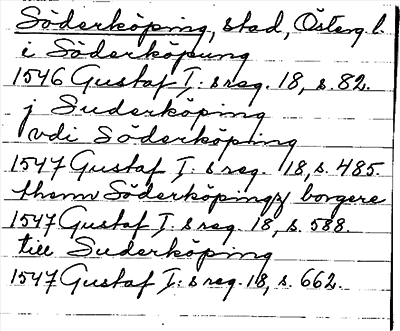 Söderköping, stad, Österg l.
i Söderköpung
1546 Gustaf I: s reg. 18, s. 82.
j Suderköping
vdi Söderköping
1547 Gustaf I: s reg. 18, s. 485.
themn Söderköpingz borgere
1547 Gustaf I: s reg. 18, s. 588.
till Suderköping
1547 Gustaf I: s reg. 18, s. 662.